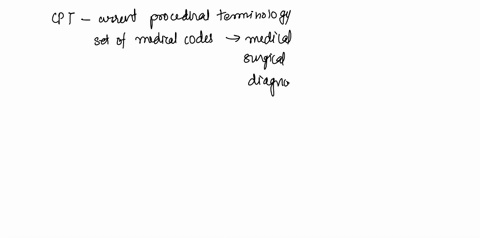 CPT - current procedural terminology
set of medical codes → medical
surgical
diagno